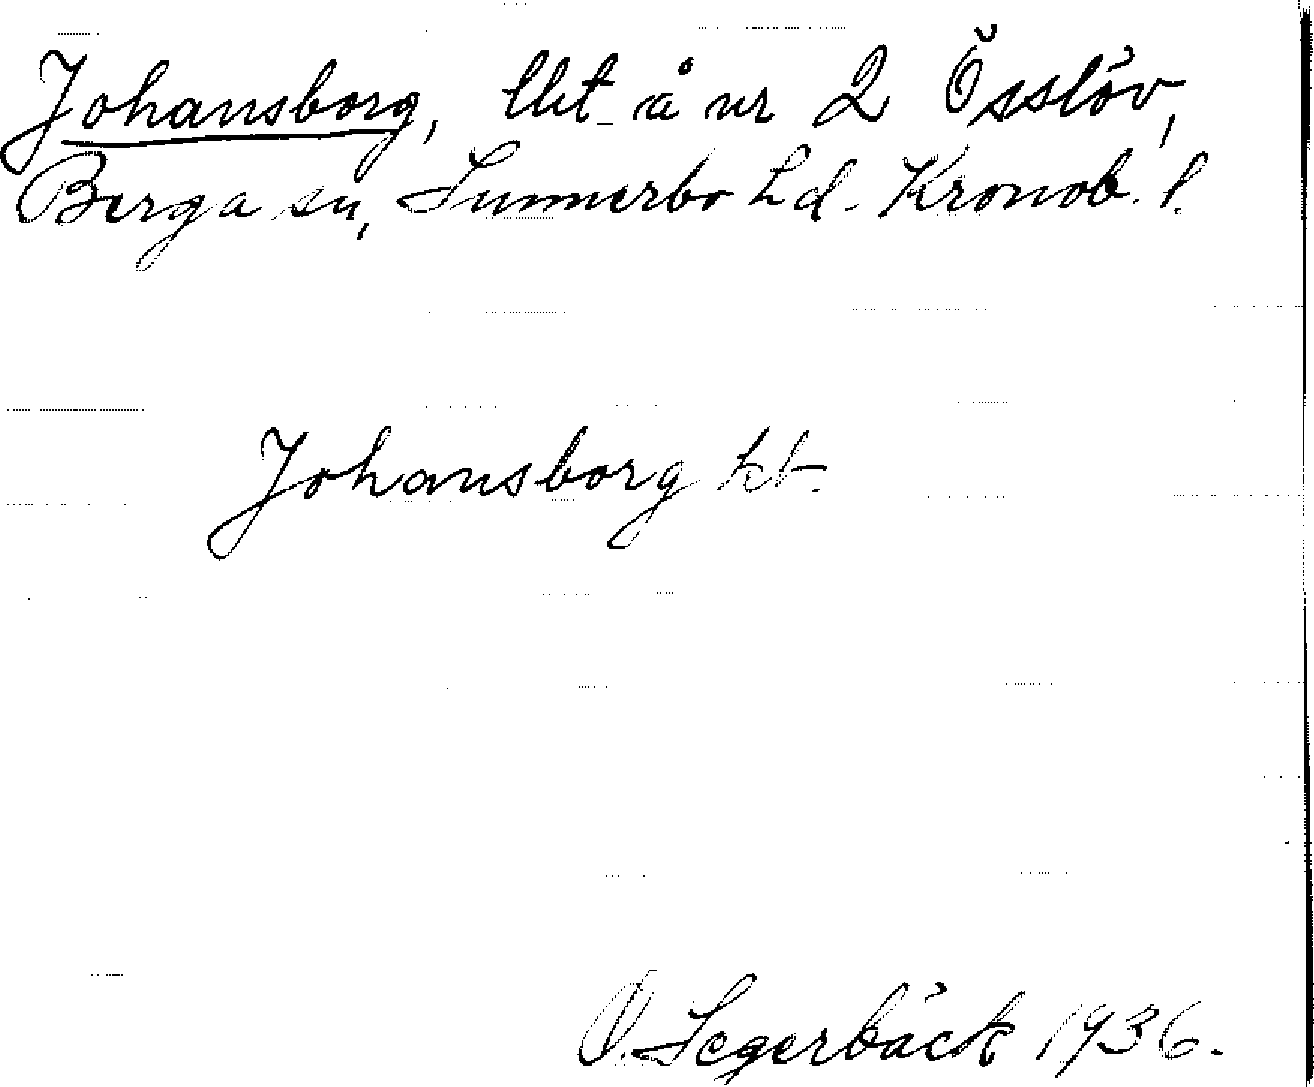 Johansborg, lht å nr 2 Össlöv,
Berga sn, Sunnerbo hd. Kronob. l.
Johansborg kt.
O. Segerbäck 1936.